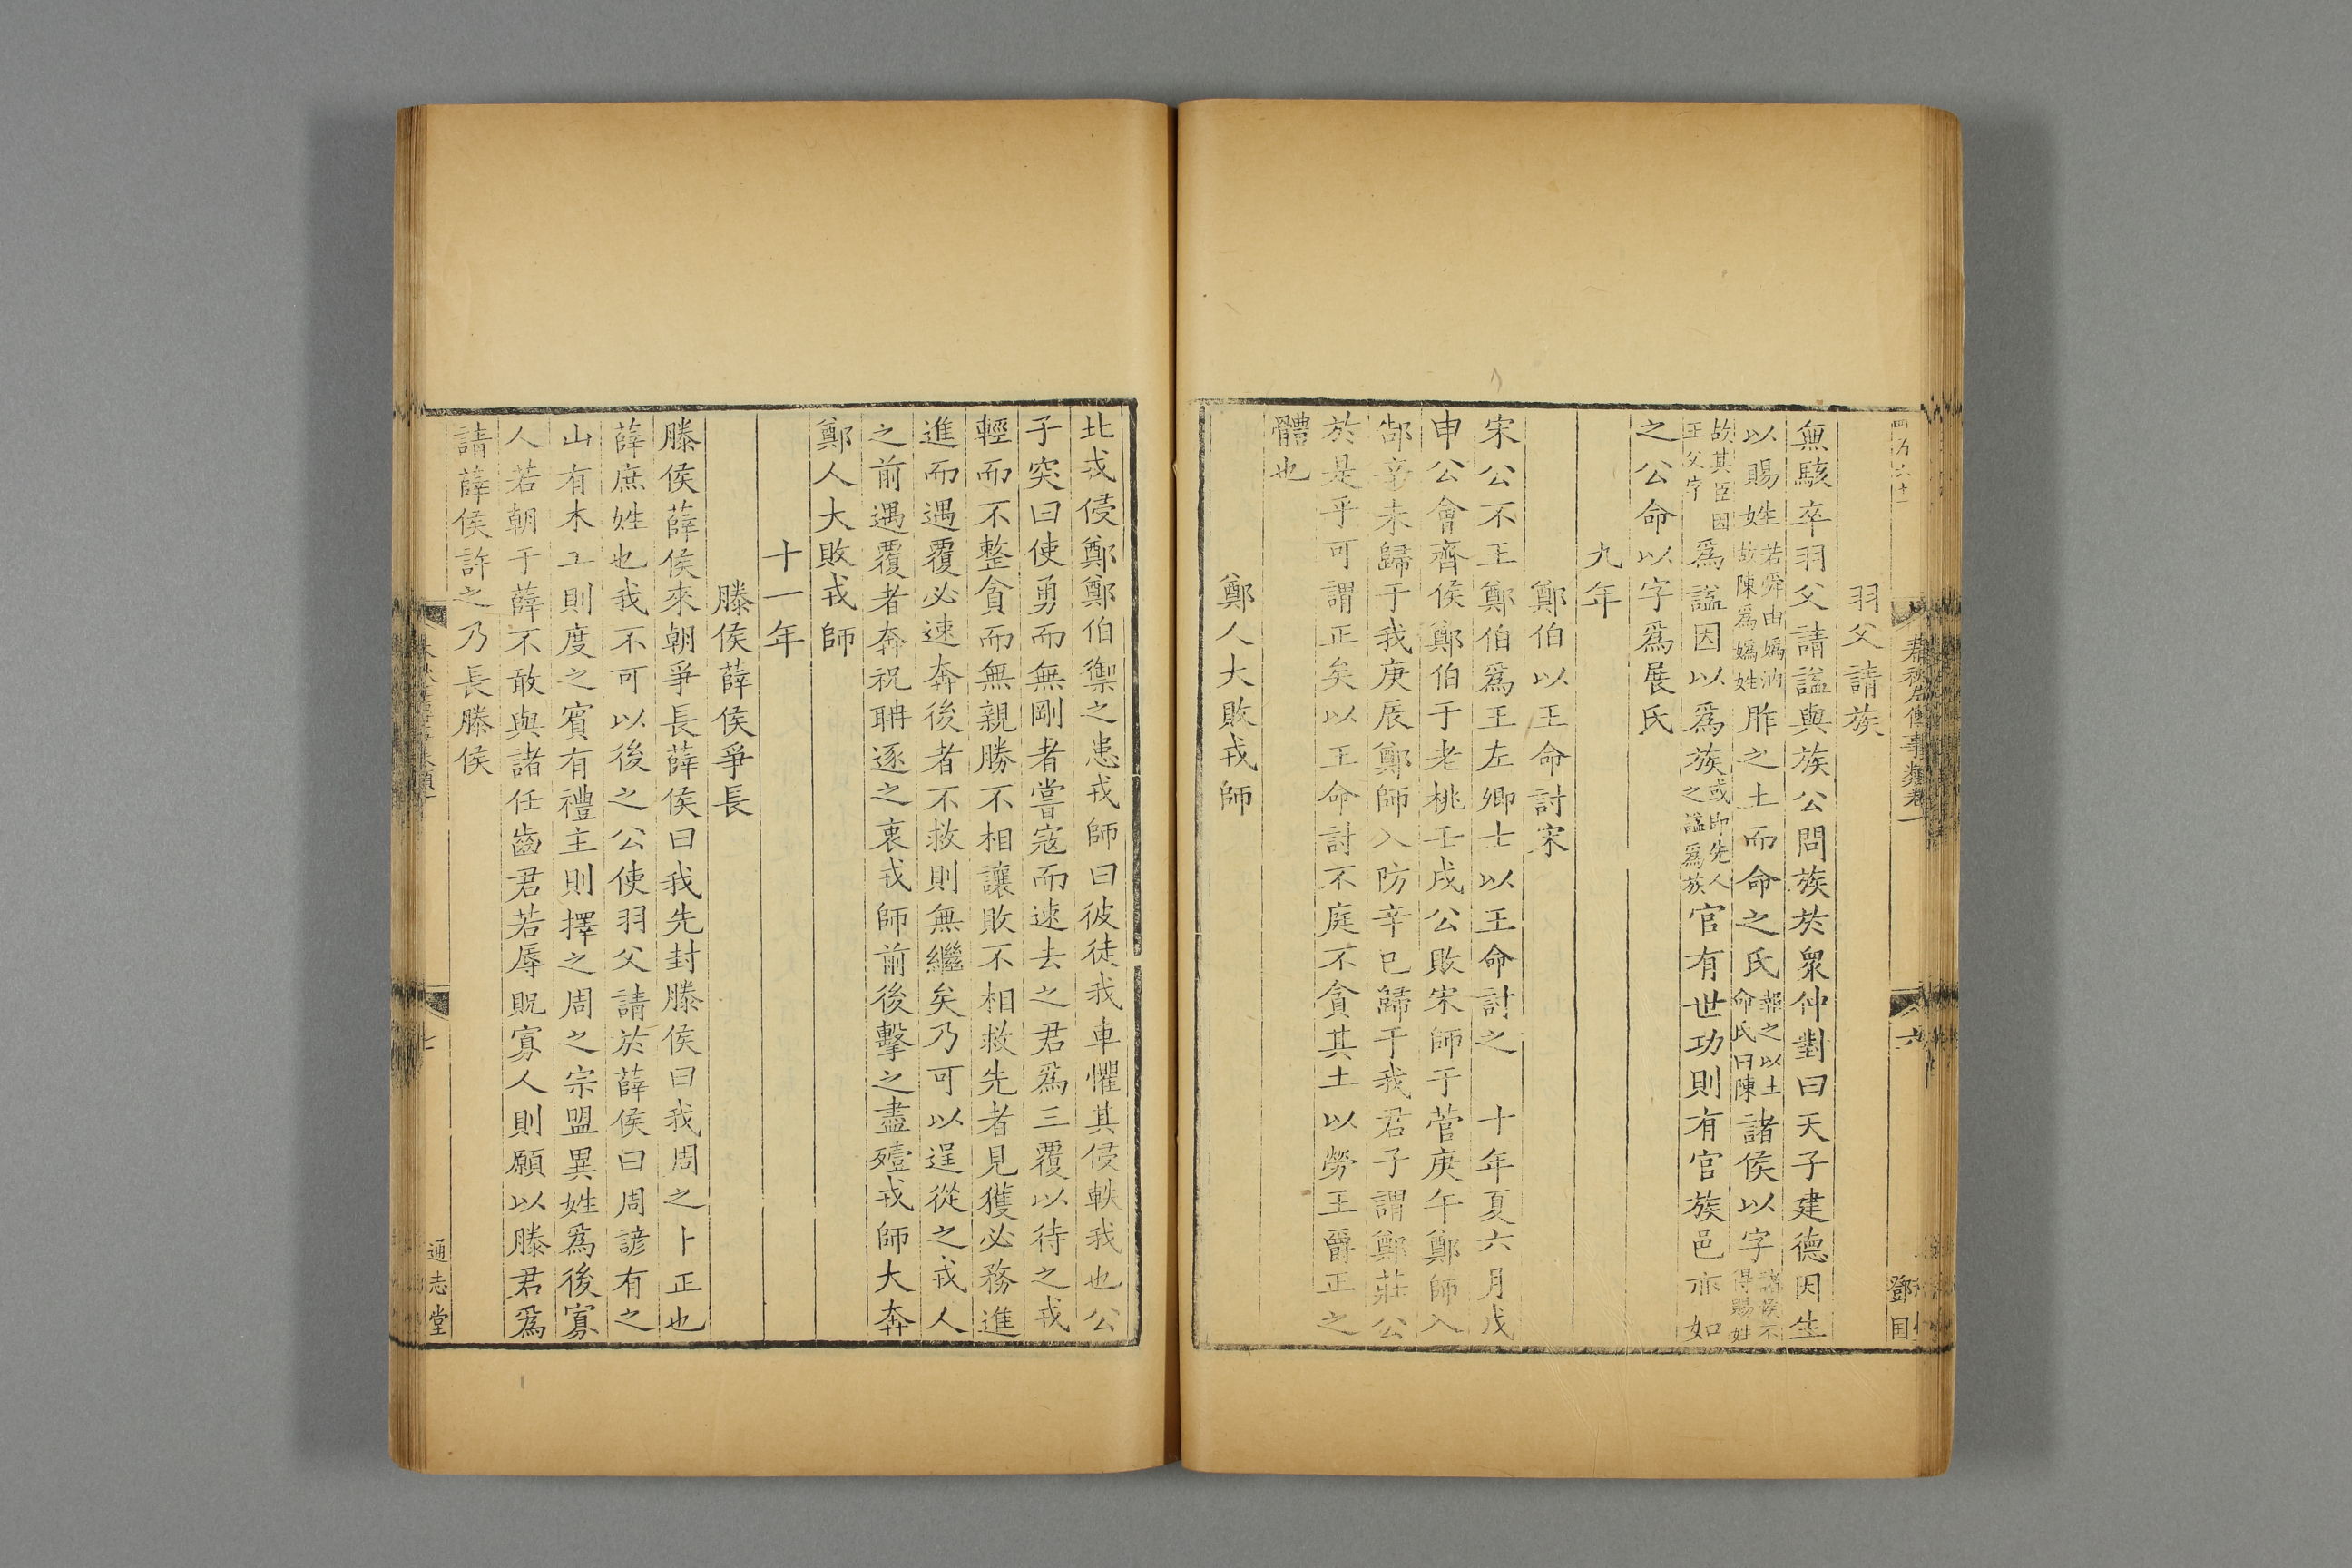 羽父請族
無駭卒羽父請諡與族公問族於衆仲對曰天子建德因生
以賜姓若舜由嬀汭故陳爲嬀姓胙之土而命之氏報之以土命氏曰陳諸侯以字諸侯不得賜姓
故其臣因王父字爲諡因以爲族或即先人之諡爲族官有世功則有官族邑亦如
之公命以字爲展氏
九年
鄭伯以王命討宋
宋公不王鄭伯爲王左卿士以王命討之 十年夏六月戊
申公會齊侯鄭伯于老桃壬戌公敗宋師于菅庚午鄭師入
郜辛未歸于我庚辰鄭師入防辛巳歸于我君子謂鄭莊公
於是乎可謂正矣以王命討不庭不貪其土以勞王爵正之
體也
鄭人大敗戎師
北戎侵鄭鄭伯禦之患戎師曰彼徒我車懼其侵軼我也公
子突曰使勇而無剛者嘗寇而速去之君爲三覆以待之戎
輕而不整貪而無親勝不相讓敗不相救先者見獲必務進
進而遇覆必速奔後者不救則無繼矣乃可以逞從之戎人
之前遇覆者奔祝聃逐之衷戎師前後擊之盡殪戎師大奔
鄭人大敗戎師
十一年
滕侯薛侯爭長
滕侯薛侯來朝爭長薛侯曰我先封滕侯曰我周之卜正也
薛庶姓也我不可以後之公使羽父請於薛侯曰周諺有之
山有木工則度之賓有禮主則擇之周之宗盟異姓爲後寡
人若朝于薛不敢與諸任齒君若辱貺寡人則願以滕君爲
請薛侯許之乃長滕侯
七
通志堂